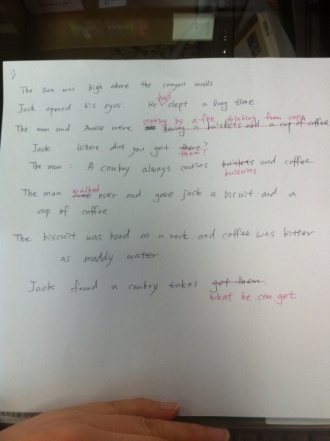 1)
The sun was high above the canyon walls
Jack opened his eyes. He had slept a long time
sitting by a fire drinking from cups
The man and Annie were having a buiskets add a cup of coffee
Jack Where did you get there?
them?
The man : A cowboy always carries buiskets and coffee
biscuits
The man walked over and gave jack a biscuit and a
cup of coffee
The biscuit was hard as a rock and coffee was bitter
as maddy water
Jack found a cowboy takes got them
what he can get.